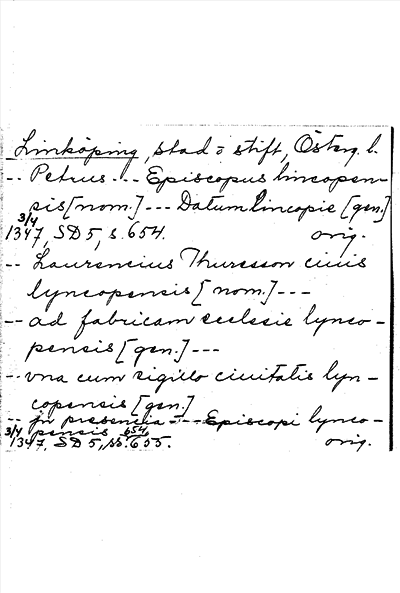 Linköping, stad o stift, Österg. l.
-- Petrus --- Episcopus lincopen-
sis [nom.] --- Datum lincopie [gen.]
3/4
1347, SD 5, s. 654. orig.
-- Laurencius Thuresson ciuis
lyncopensis [nom.] ---
-- ad fabricam ecclesie lynco-
pensis [gen.] ---
-- vna cum sigillo ciuitatis lyn-
copensis [gen.]
-- jn presencia --- Episcopi lynco-
pensis 654,
3/4 1347, SD 5, ss. 655. orig.